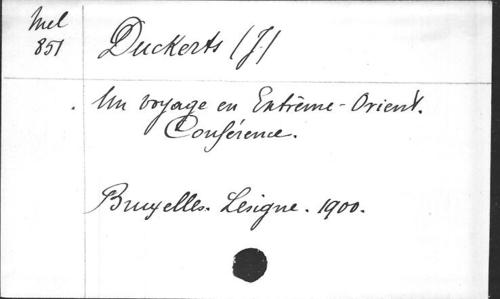 Mel
851
Duckerts (J.)
Un voyage en Extrême-Orient.
Conférence.
Bruxelles. Lesigne. 1900.